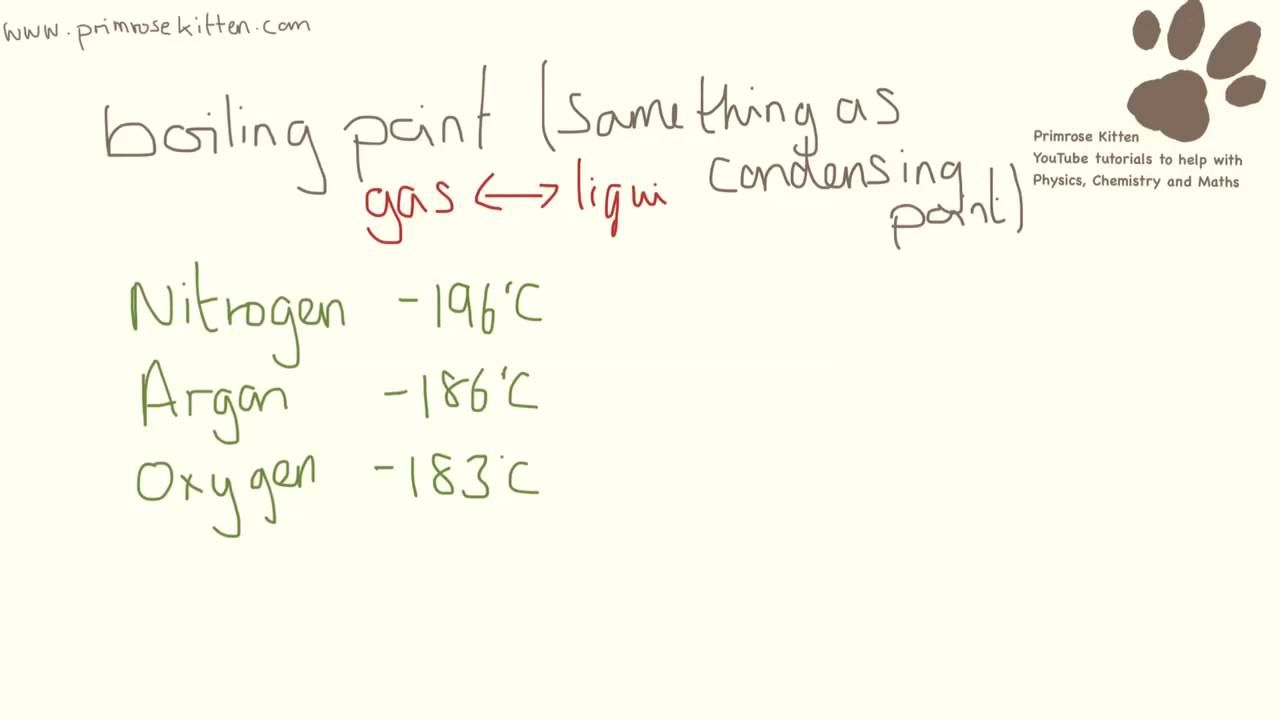 www.primrosekitten.com
boiling point (same thing as
condensing
point)
gas ↔ liqui
Primrose Kitten
YouTube tutorials to help with
Physics, Chemistry and Maths
Nitrogen -196°C
Argon -186°C
Oxygen -183°C